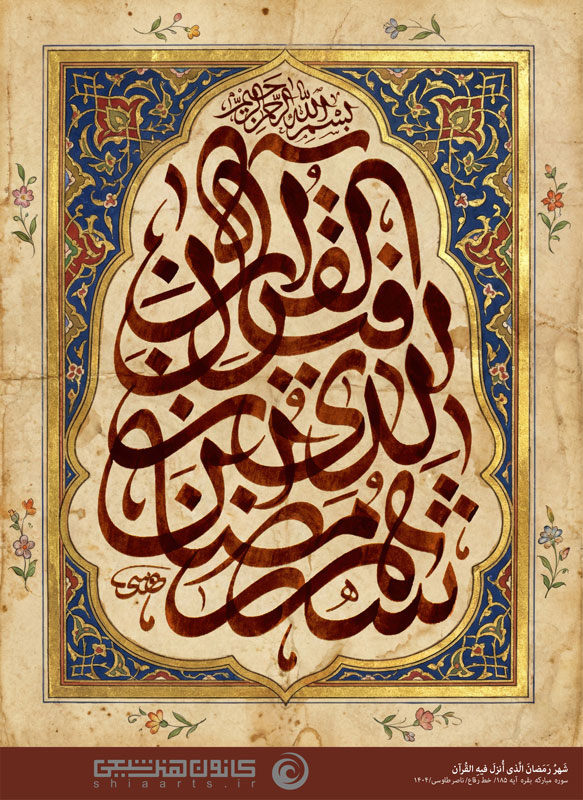 بسم الله الرحمن الرحیم
شهر رمضان
الذی انزل
فیه القرآن
شَهرُ رَمَضانَ الَّذی أُنزِلَ فیهِ القُرآن
سوره مبارکه بقره آیه ۱۸۵/ خط رقاع/ ناصر طاوسی/۱۴۰۴
کانون هنر شیعی
shiaarts.ir